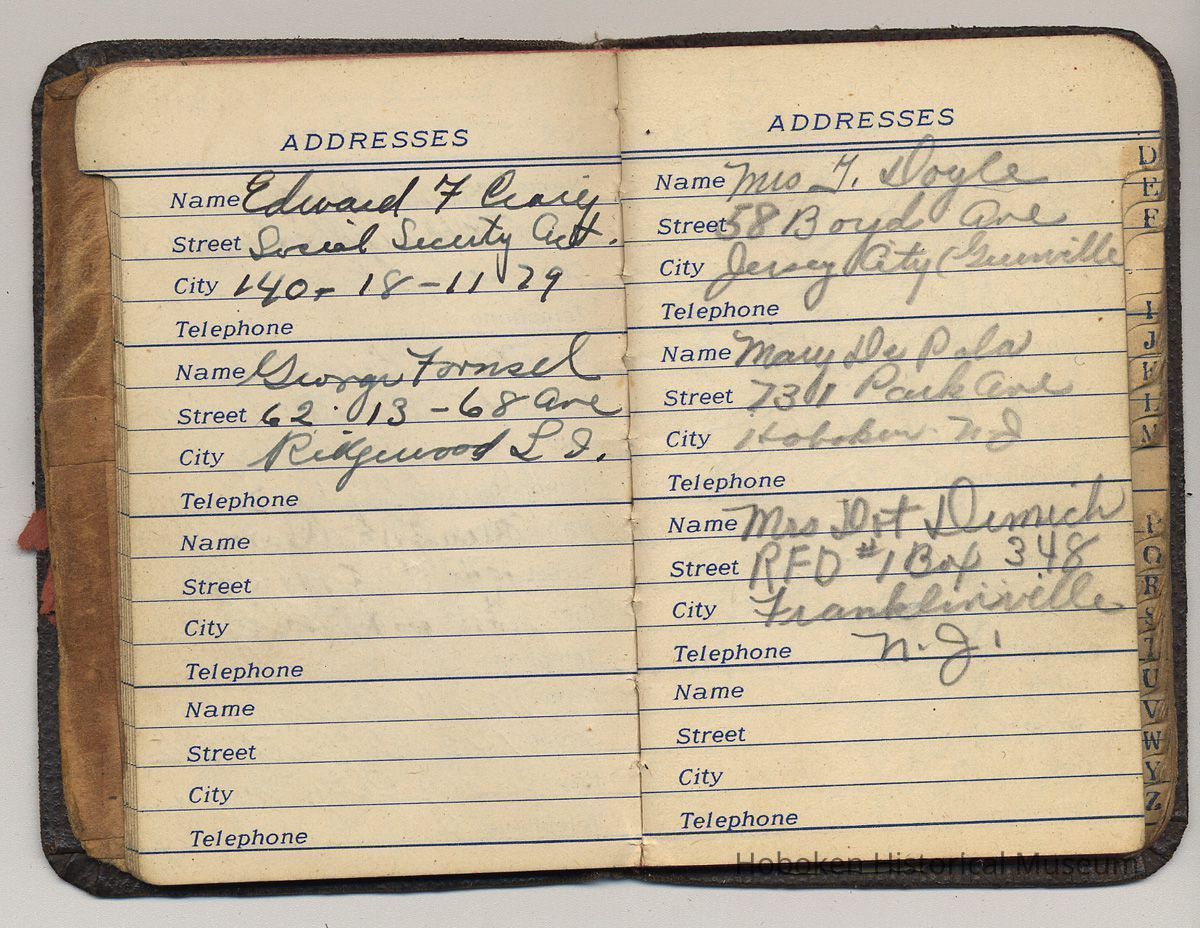 ADDRESSES
Name Edward F Craig
Street Social Security Act.
City 140-18-11 79
Telephone
Name George Fornsel
Street 62-13-68 Ave
City Ridgewood L I.
Telephone
Name
Street
City
Telephone
Name
Street
City
Telephone
ADDRESSES
Name Mrs Doyle
Street 58 Boyd Ave
City Jersey City (Greenville
Telephone
Name Mary De Palo
Street 731 Park Ave
City Hoboken N J
Telephone
Name Mrs Dot Dimich
Street RFD #1 Box 348
City Franklinville
Telephone N.J.
Name
Street
City
Telephone
D
E
F
I
J
L
N
P
Q
R
S
T
U
V
W
Y
Z
Hoboken Historical Museum